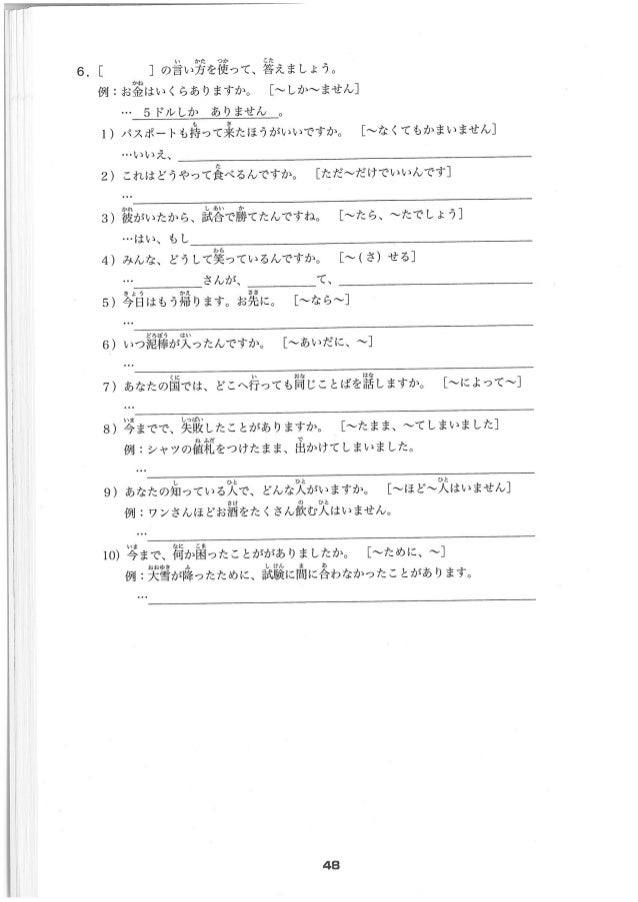 6．[　　　]の言い方を使って、答えましょう。
例：お金はいくらありますか。　[～しか～ません]
… 5ドルしか　ありません 。
1）パスポートも持って来たほうがいいですか。　[～なくてもかまいません]
…いいえ、
2）これはどうやって食べるんですか。　[ただ～だけでいいんです]
…
3）彼がいたから、試合で勝てたんですね。　[～たら、～たでしょう]
…はい、もし
4）みんな、どうして笑っているんですか。　[～(さ)せる]
…　　　　さんが、　　　　て、
5）今日はもう帰ります。お先に。　[～なら～]
…
6）いつ泥棒が入ったんですか。　[～あいだに、～]
…
7）あなたの国では、どこへ行っても同じことばを話しますか。　[～によって～]
…
8）今までで、失敗したことがありますか。　[～たまま、～てしまいました]
例：シャツの値札をつけたまま、出かけてしまいました。
…
9）あなたの知っている人で、どんな人がいますか。　[～ほど～人はいません]
例：ワンさんほどお酒をたくさん飲む人はいません。
…
10）今まで、何か困ったことががありましたか。　[～ために、～]
例：大雪が降ったために、試験に間に合わなかったことがあります。
…
48